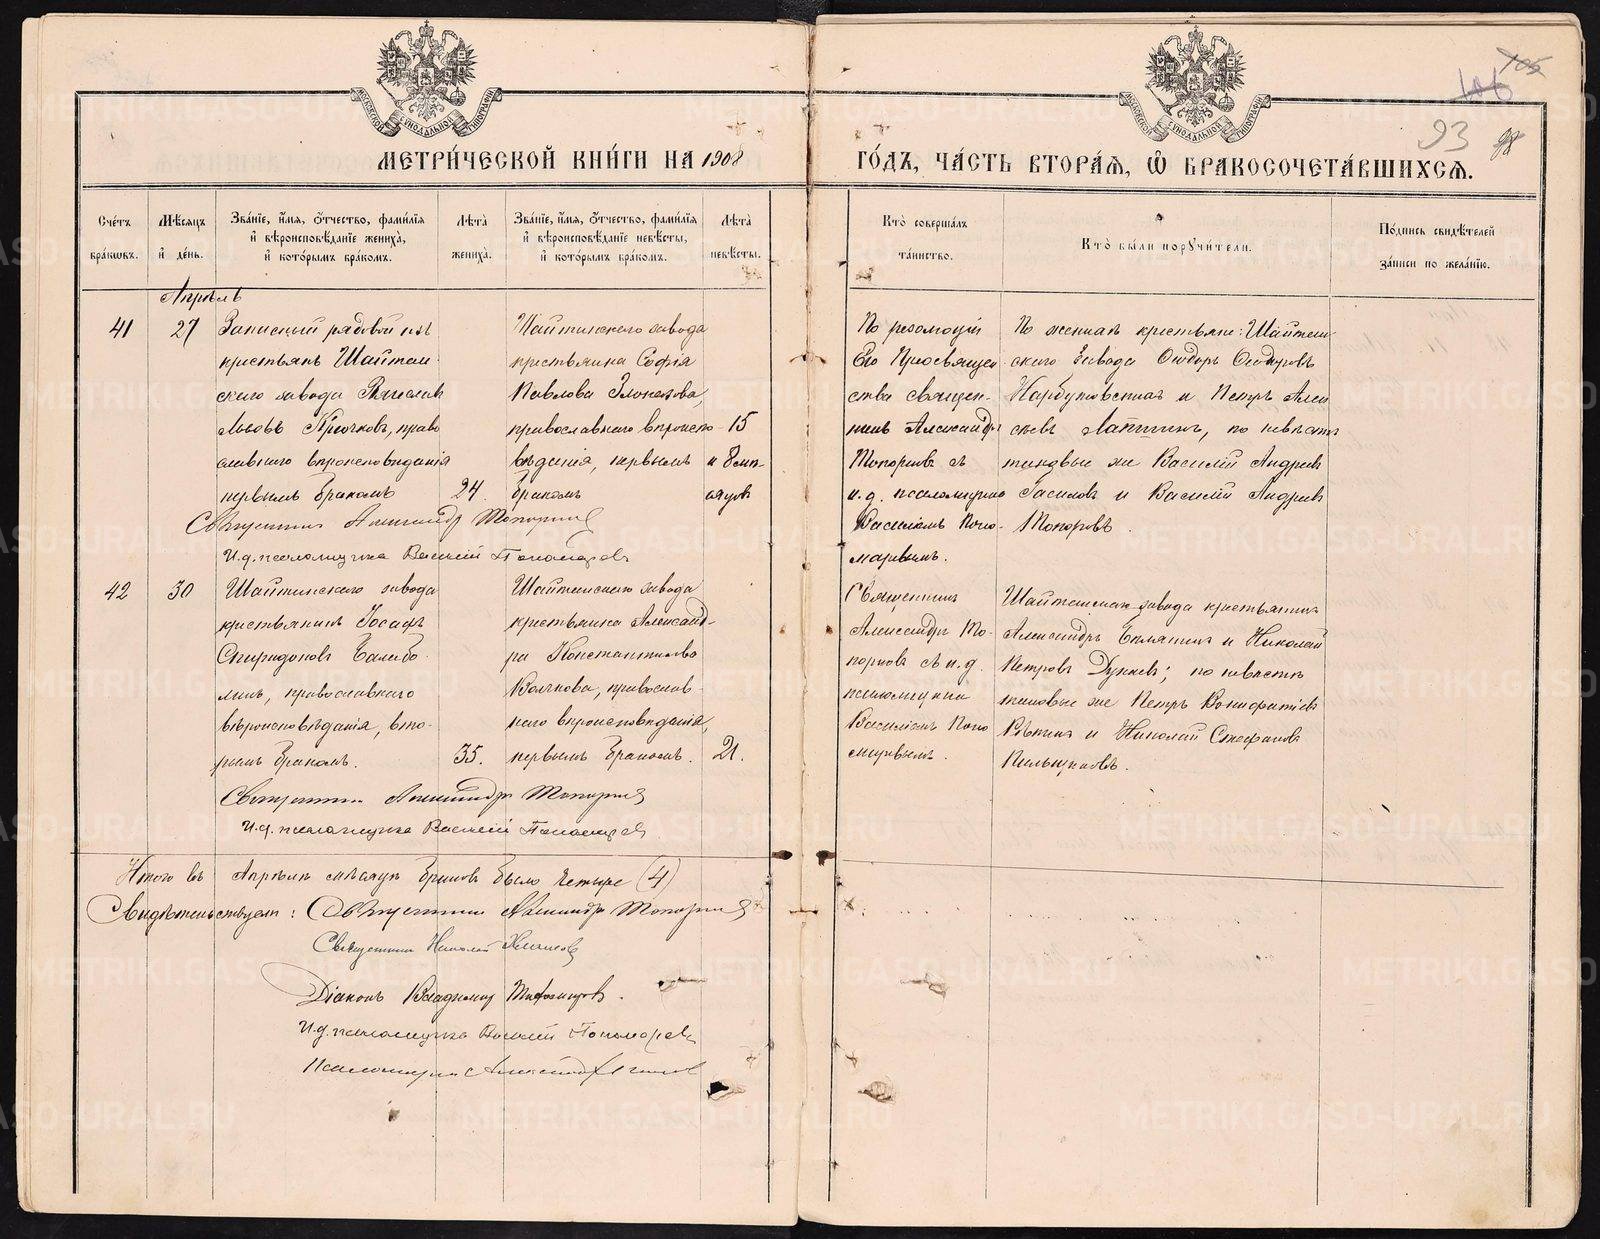 МЕТРИ́ЧЕСКОЙ КНИ́ГИ НА 1908
ГО́ДЪ, ЧА́СТЬ ВТОРА́Я, Ѽ БРАКОСОЧЕТА́ВШИХСЯ.
105
106
93
98
МОСКОВСКОЙ СѴНОДАЛЬНОЙ ТИПОГРАФІИ
МОСКОВСКОЙ СѴНОДАЛЬНОЙ ТИПОГРАФІИ
Сче́тъ
бра́кωвъ.
Мѣ́сяцъ
и҆ де́нь.
Зва́нїе, и҆́мя, о҆́тчество, фами́лїя
и҆ вѣроисповѣ́данїе жениха̀,
и҆ кото́рымъ бра́комъ.
Лѣ́та
жениха̀.
Зва́нїе, и҆́мя, о҆́тчество, фами́лїя
и҆ вѣроисповѣ́данїе невѣ́сты,
и҆ кото́рымъ бра́комъ.
Лѣ́та
невѣ́сты.
Кто̀ соверша́лъ
та́инство.
Кто̀ бы́ли порꙋчи́тели.
По́дпись свидѣ́телей
за́писи по жела́нїю.
Апрѣль
41
27
Запасный рядовой изъ
крестьянъ Шайтан-
скаго завода Вячеслав
Львовъ Крючковъ, право
славнаго вѣроисповѣданія
первымъ бракомъ
24.
Шайтанскаго завода
крестьянка Софія
Павлова
православнаго вѣроиспо-
вѣданія, первымъ
бракомъ
15
и 8 мѣ-
сяцовъ
По резолюціи
Его Преосвящен
ства священ-
никъ Александръ
Топорковъ съ
и.д. псаломщика
Василіемъ Поно-
маревымъ.
По женихѣ крестьяне: Шайтан
скаго Завода Ѳедоръ Ѳедоровъ
Нарбутовскихъ и Петръ Алек
сѣевъ Лапшинъ, по невѣстѣ
таковые же Василій Андреевъ
и Василій Андреевъ
Топоровъ.
Священникъ Александръ Топорковъ
И.д. псаломщика Василій Пономаревъ
42
30
Шайтанскаго завода
крестьянинъ Іосафъ
Спиридоновъ Балабо
линъ, православнаго
вѣроисповѣданія, вто-
рымъ бракомъ.
35.
Шайтанскаго завода
крестьянка Александ-
ра Константинова
Волчкова, православ-
наго вѣроисповѣданія,
первымъ бракомъ.
21.
Священникъ
Александръ То-
порковъ съ и.д.
псаломщика
Василіемъ Поно
маревымъ.
Шайтанскаго завода крестьянинъ
Александръ и Николай
Петровъ по невѣстѣ
таковые же Петръ Вонифатіевъ
и Николай Стефановъ
Пильщиковъ.
Священникъ Александръ Топорковъ
И.д. псаломщика Василій Пономаревъ
Итого въ Апрѣлѣ мѣсяцѣ браковъ было четыре (4)
Свидѣтельствуемъ: Священникъ Александръ Топорковъ
Священникъ Николай
Діаконъ Владимиръ
И.д. псаломщика Василій Пономаревъ
Псаломщикъ Александръ
METRIKI.GASO-URAL.RU